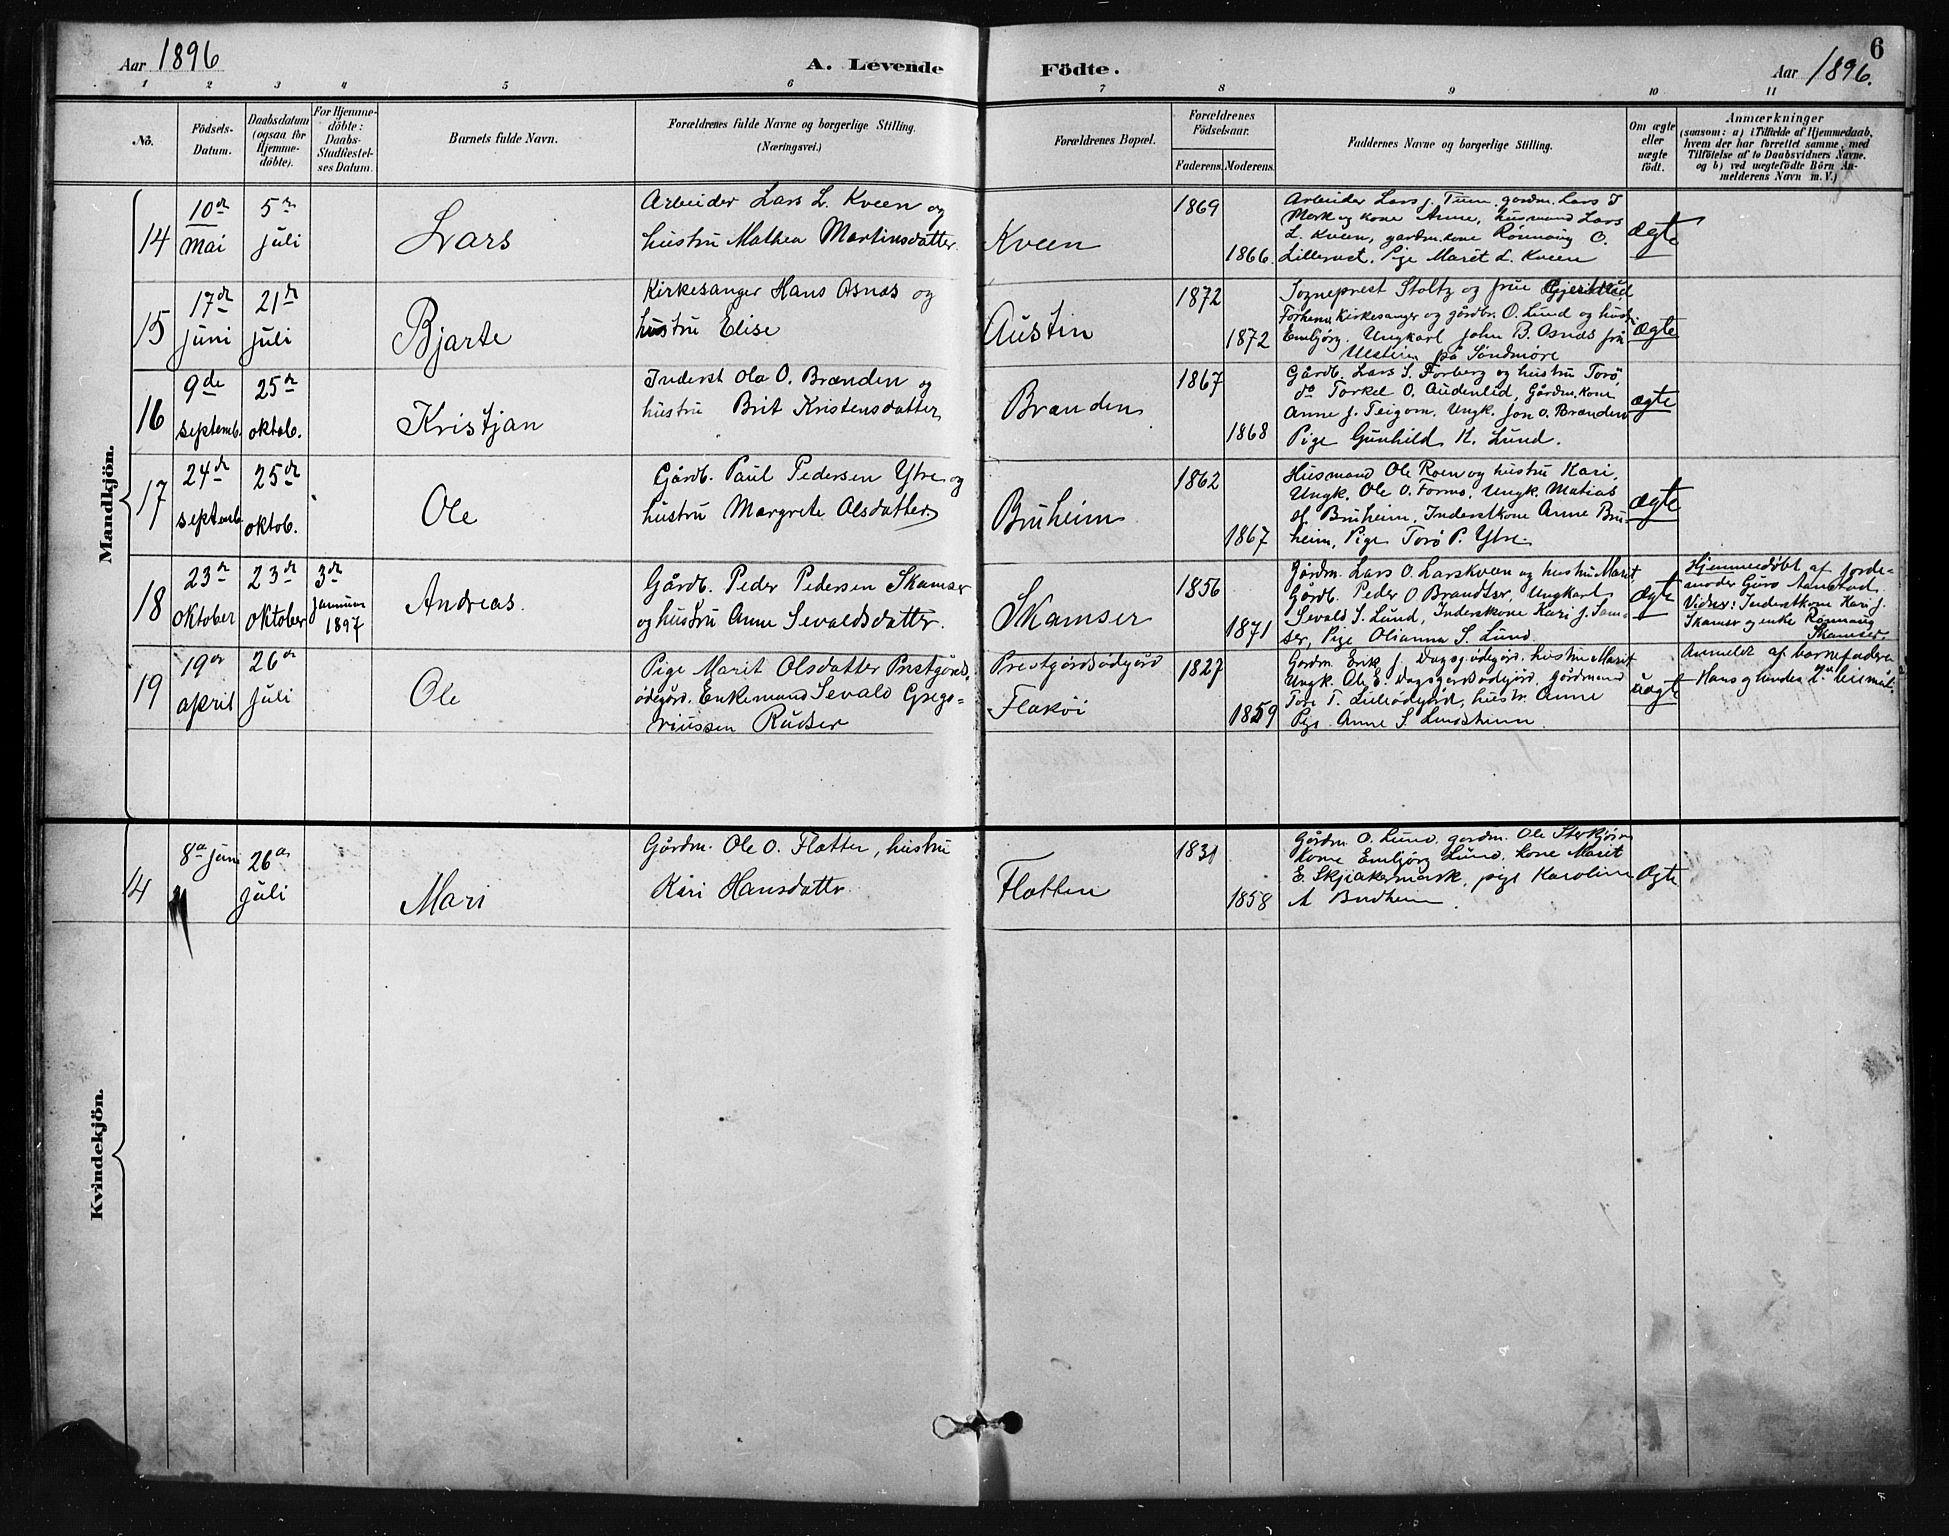 Aar 1896
A. Levende
Födte.
6
Aar 1896.
1 2 3 4 5 6 7 8 9 10 11
No.
Födsels-
Datum.
Daabsdatum
(ogsaa för
Hjemme-
döbte).
For Hjemme-
döbte:
Daabs-
Stadfæstel-
ses Datum.
Barnets fulde Navn.
Forældrenes fulde Navne og borgerlige Stilling.
(Næringsvei.)
Forældrenes Bopæl.
Forældrenes
Födselsaar.
Faderens. Moderens.
Faddernes Navne og borgerlige Stilling.
Om ægte
eller
uægte
födt.
Anmærkninger
(saasom: a) i Tilfælde af Hjemmedaab,
hvem der har forrettet samme, med
Tilföielse af to Daabsvidners Navne.
og b) ved uægtefödte Börn An-
melderens Navn m. V.)
Mandkjön.
14
10de
mai
5te
juli
Lars
Arbeider Lars L. Kveen og
hustru Mathea Martinsdatter.
Kveen
1869
1866.
Arbeider Lars J. Tum, gardm. Lars T
Mork og kone Anne, husmand Lars
L. Kveen, gardm.kone Rönnaug O.
Lillerust. Pige Marit L. Kveen
ægte
15
17de
juni
21de
juli
Bjarte
Kirkesanger Hans Osnæs og
hustru Elise
Austin
1872
1872
Sogneprest Stoltz og frue
Kirkesanger og gårdbr. O. Lund og hustr.
Embjørg. Ungkarl John B. Osnæs fra
på Söndmöre
ægte
16
9de
septemb.
25de
oktob.
Kristjan
Inderst Ola O. Brænden og
hustru Brit Kristensdatter
Brænden
1867
1868
Gårdb. Lars S. Forberg og hustru Torö,
do Torkel O. Audenlid, Gårdm.kone
Anne J. Teigom. Ungk. Jon O. Brænden
Pige Gunhild K. Lund.
ægte
17
24de
septemb.
25de
oktob.
Ole
Gårdb. Paul Pedersen Ytre og
hustru Margrete Olsdatter.
Bruheim
1862
1867
Husmand Ole Roen og hustru Kari,
Ungk. Ole O. Formo, Ungk. Matias
Bruheim, Inderstkone Anne Bru-
heim, Pige Torö P. Ytre.
ægte
18
23de
oktober
23de
oktober
3de
januar
1897
Andreas.
Gårdb. Peder Pedersen Skamser
og hustru Anne Sevaldsdatter.
Skamser
1856
1871
Gårdm. Lars O. Larskveen og hustru Marit,
Gårdb. Peder O Brandtser, Ungkarl
Sevald S. Lund, Inderstkone Kari J. Sam-
ser, Pige Olianna S. Lund.
ægte
Hjemmedöbt af jorde-
moder Guro Aanstad
Vidner: Inderstkone Kari J.
Skamser og enke Rönnaug
Skamser.
19
19de
april
26de
juli
Ole
Pige Marit Olsdatter Prestgårds-
ödegård. Enkemand Sevald Grego-
riussen Rudser
Prestgårdsödegård
Flakoi
1827
1859
Gårdm. Erik J. Dagsgödegård, hustru Marit
Ungk. Ole E. Dagsgårdsödegård, gårdmand
Tore T. Lilleödegård, hustr. Anne
Pige Anne S. Lundsheim
uægte
Anmeldt af barnefaderen
Hans og hendes
Kvindekjön.
14
8de juni
26de
juli
Mari
Gårdm. Ole O. Flatten, hustru
Kari Hansdatter
Flatten
1831
1858
Gårdm O. Lund, gardm. Ole
Kone Embjørg Lund, kone Marit
E. Skjeakermark, pige Karoline
Budheim.
ægte